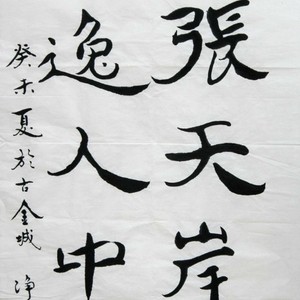 張天岸
逸人中
癸未夏於古金城 净